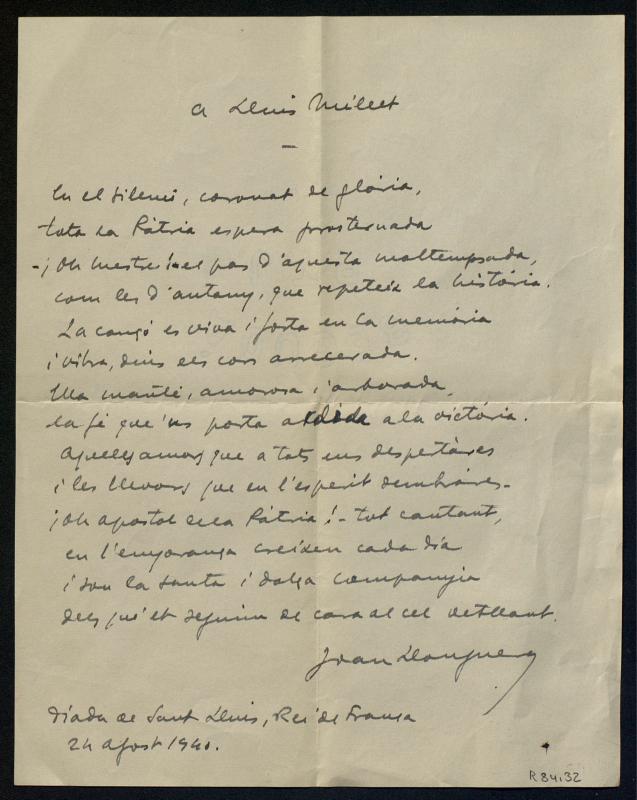 A Lluis Millet
—
En el silenci, coronat de glòria,
tota la Pàtria espera prosternada
-¡Oh mestre!- el pas d'aquesta maltempsada,
com les d'antany, que repeteix la història.
La cançó es viva i forta en la memòria
i vibra, dins els cors arrecerada.
Ella manté, amorosa i arborada,
la fé que'ns porta ardida a la victòria.
Aquells amors que a tots ens despertàres
i les llavors que en l'esperit sembràres -
¡Oh apostol de la Pàtria! - tot cantant,
en l'enyorança creixen cada dia
i son la santa i dolça companyia
dels qu'et seguim de cara al cel
Joan Llongueras
Diada de Sant Lluis, Rei de França
24 Agost 1940.
R 84.32